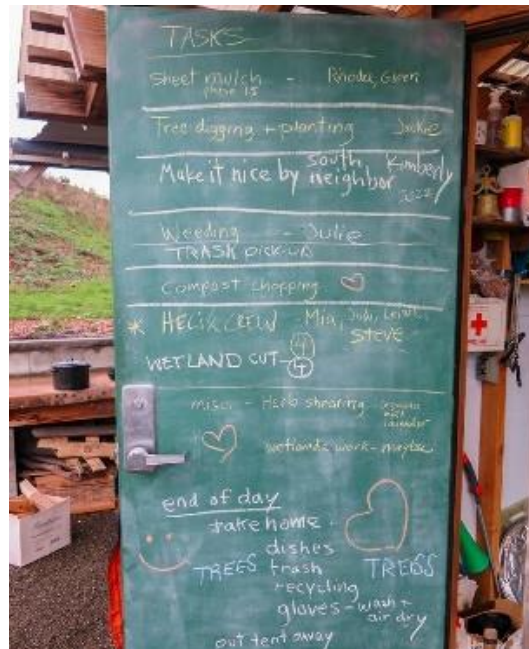 TASKS
sheet mulch - Rhoda, Gwen
phase 15
Tree digging + planting Jackie
Make it nice by south neighbor Kimberly
Weeding - Julie
TRASH PICK-UP
compost chopping
* HELIX CREW - Mia,
Steve
WETLAND CUT - 4
misc. - Herb shearing
wetlands work - maybe
end of day
take home
dishes
TREES trash TREES
recycling
gloves - wash +
air dry
put tent away